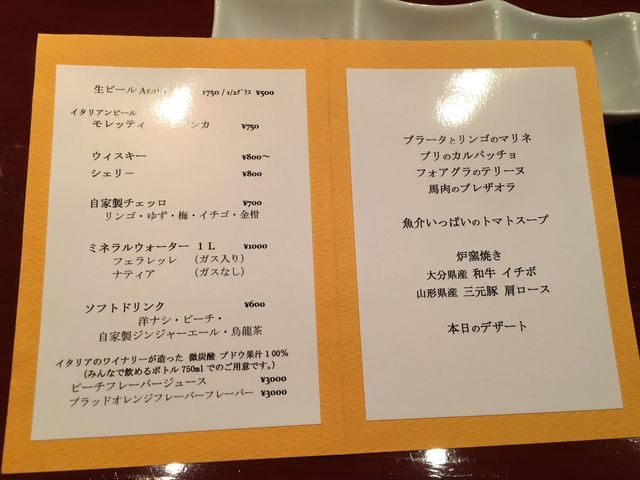 生ビール Asahi ¥750 / 1/2ｸﾞﾗｽ ¥500
イタリアンビール
モレッティ ンカ ¥750
ウィスキー ¥800～
シェリー ¥800
自家製チェッロ ¥700
リンゴ・ゆず・梅・イチゴ・金柑
ミネラルウォーター 1L ¥1000
フェラレッレ （ガス入り）
ナティア （ガスなし）
ソフトドリンク ¥600
洋ナシ・ピーチ・
自家製ジンジャーエール・烏龍茶
イタリアのワイナリーが造った 微炭酸 ブドウ果汁100%
（みんなで飲めるボトル750mlでのご用意です。）
ピーチフレーバージュース ¥3000
ブラッドオレンジフレーバーフレーバー ¥3000
ブラータとリンゴのマリネ
ブリのカルパッチョ
フォアグラのテリーヌ
馬肉のブレザオラ
魚介いっぱいのトマトスープ
炉窯焼き
大分県産 和牛 イチボ
山形県産 三元豚 肩ロース
本日のデザート